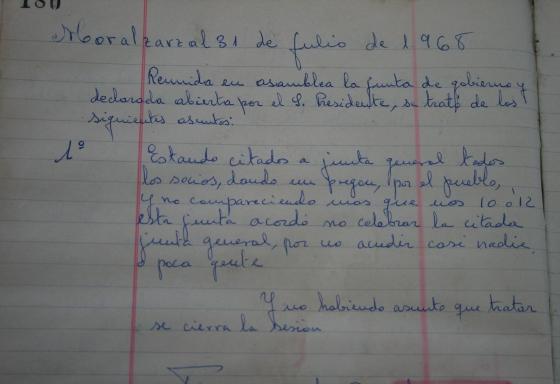 180
Moralzarzal 31 de Julio de 1968
Reunida en asamblea la junta de gobierno y
declarada abierta por el S. Presidente, se trató de los
siguientes asuntos:
1º Estando citados a junta general todos
los socios, dando un pregon, por el pueblo,
y no compareciendo mas que unos 10 o 12
esta junta acordó no celebrar la citada
junta general, por no acudir casi nadie.
o poca gente
Y no habiendo asunto que tratar
se cierra la sesion